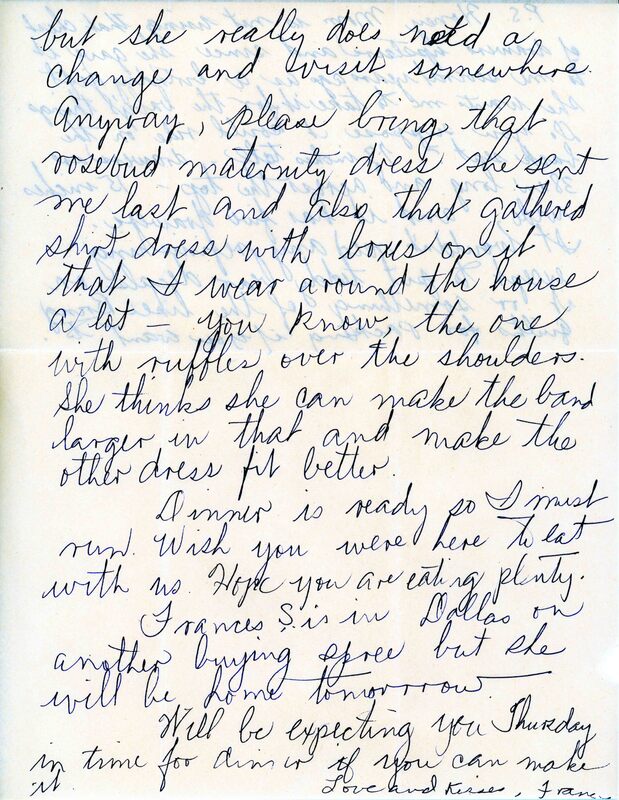 but she really does need a
change and visit somewhere.
Anyway, please bring that
rosebud maternity dress she sent
me last and also that gathered
shirt dress with boxes on it
that I wear around the house
a lot — you know, the one
with ruffles over the shoulders.
She thinks she can make the band
larger in that and make the
other dress fit better.
Dinner is ready so I must
run. Wish you were here to eat
with us. Hope you are eating plenty.
Frances S. is in Dallas on
another buying spree but she
will be home tomorrrow.
Will be expecting you Thursday
in time for dinner if you can make
it.
Love and Kisses, Franc